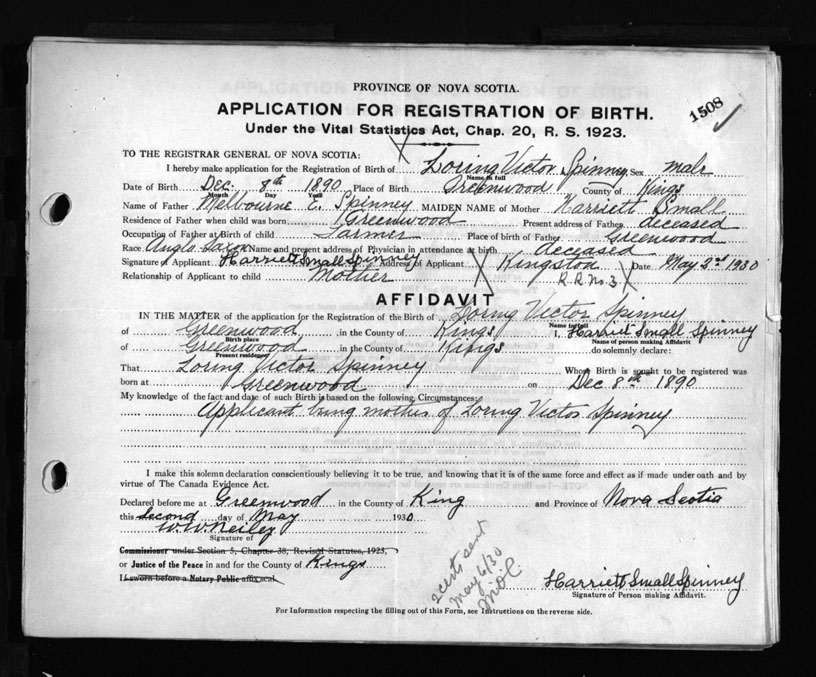 PROVINCE OF NOVA SCOTIA.
1508
APPLICATION FOR REGISTRATION OF BIRTH.
Under the Vital Statistics Act, Chap. 20, R. S. 1923.
TO THE REGISTRAR GENERAL OF NOVA SCOTIA:
I hereby make application for the Registration of Birth of Loring Victor Spinney Sex male
Name in full
Date of Birth Dec. 8th 1890 Place of Birth Greenwood County of Kings
Month Day Year
Name of Father Melbourne E. Spinney MAIDEN NAME of Mother Harriett Small
Residence of Father when child was born Greenwood Present address of Father deceased
Occupation of Father at Birth of child Farmer Place of birth of Father Greenwood
Race Anglo Saxon Name and present address of Physician in attendance at birth deceased
Signature of Applicant Harriett Small Spinney Address of Applicant Kingston Date May 2nd 1930
Relationship of Applicant to child Mother R.R. No. 3
AFFIDAVIT
IN THE MATTER of the application for the Registration of the Birth of Loring Victor Spinney
Name in full
of Greenwood in the County of Kings I, Harriet Small Spinney
Birth place Name of person making Affidavit
of Greenwood in the County of Kings do solemnly declare:
Present residence
That Loring Victor Spinney Whose Birth is sought to be registered was
born at Greenwood on Dec. 8th 1890
My knowledge of the fact and date of such Birth is based on the following Circumstances:
Applicant being mother of Loring Victor Spinney
I make this solemn declaration conscientiously believing it to be true, and knowing that it is of the same force and effect as if made under oath and by
virtue of The Canada Evidence Act.
Declared before me at Greenwood in the County of King and Province of Nova Scotia
this Second day of May 1930
W. W. Neiley
Signature of
Commissioner under Section 5, Chapter 38, Revised Statutes, 1923,
or Justice of the Peace in and for the County of Kings
If sworn before a Notary Public affix seal.
2 certs sent
May 6/30
Harriett Small Spinney
Signature of Person making Affidavit.
For Information respecting the filling out of this Form, see Instructions on the reverse side.